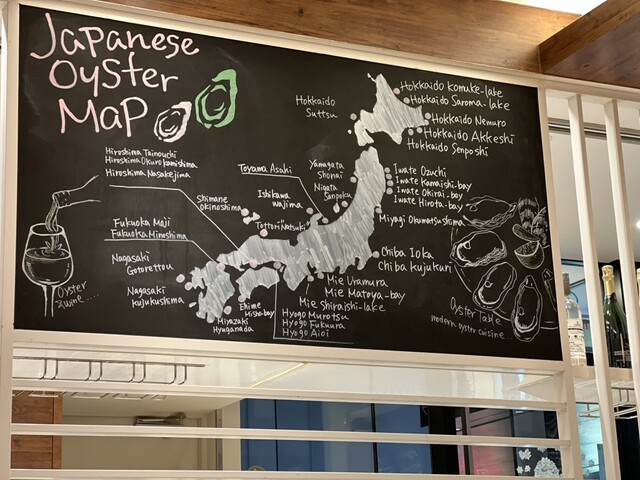 Japanese
Oyster
Map
Hokkaido
Suttsu
Hokkaido komuke-lake
Hokkaido Saroma-lake
Hokkaido Nemuro
Hokkaido Akkeshi
Hokkaido Senposhi
Hiroshima Tainouchi
Hiroshima Okurokamishima
Hiroshima Nasakejima
Toyama Asaki
Yamagata
Shonai
Nigata
Sanpoku
Ishikawa
wajima
Shimane
okinoshima
Tottori "Natsuki"
Iwate Ozuchi
Iwate Kamaishi-bay
Iwate Okirai-bay
Iwate Hirota-bay
Miyagi Okumatsushima
Fukuoka Maji
Fukuoka Mirushima
Nagasaki
Gotorettou
Nagasaki
kujukushima
Chiba Ioka
Chiba kujukuri
Mie Uramura
Mie Matoya-bay
Mie Shiraishi-lake
Ehime
Misho-bay
Miyazaki
Hyuganada
Hyogo Murotsu
Hyogo Fukuura
Hyogo Aioi
Oyster
Oyster Table
modern oyster cuisine...